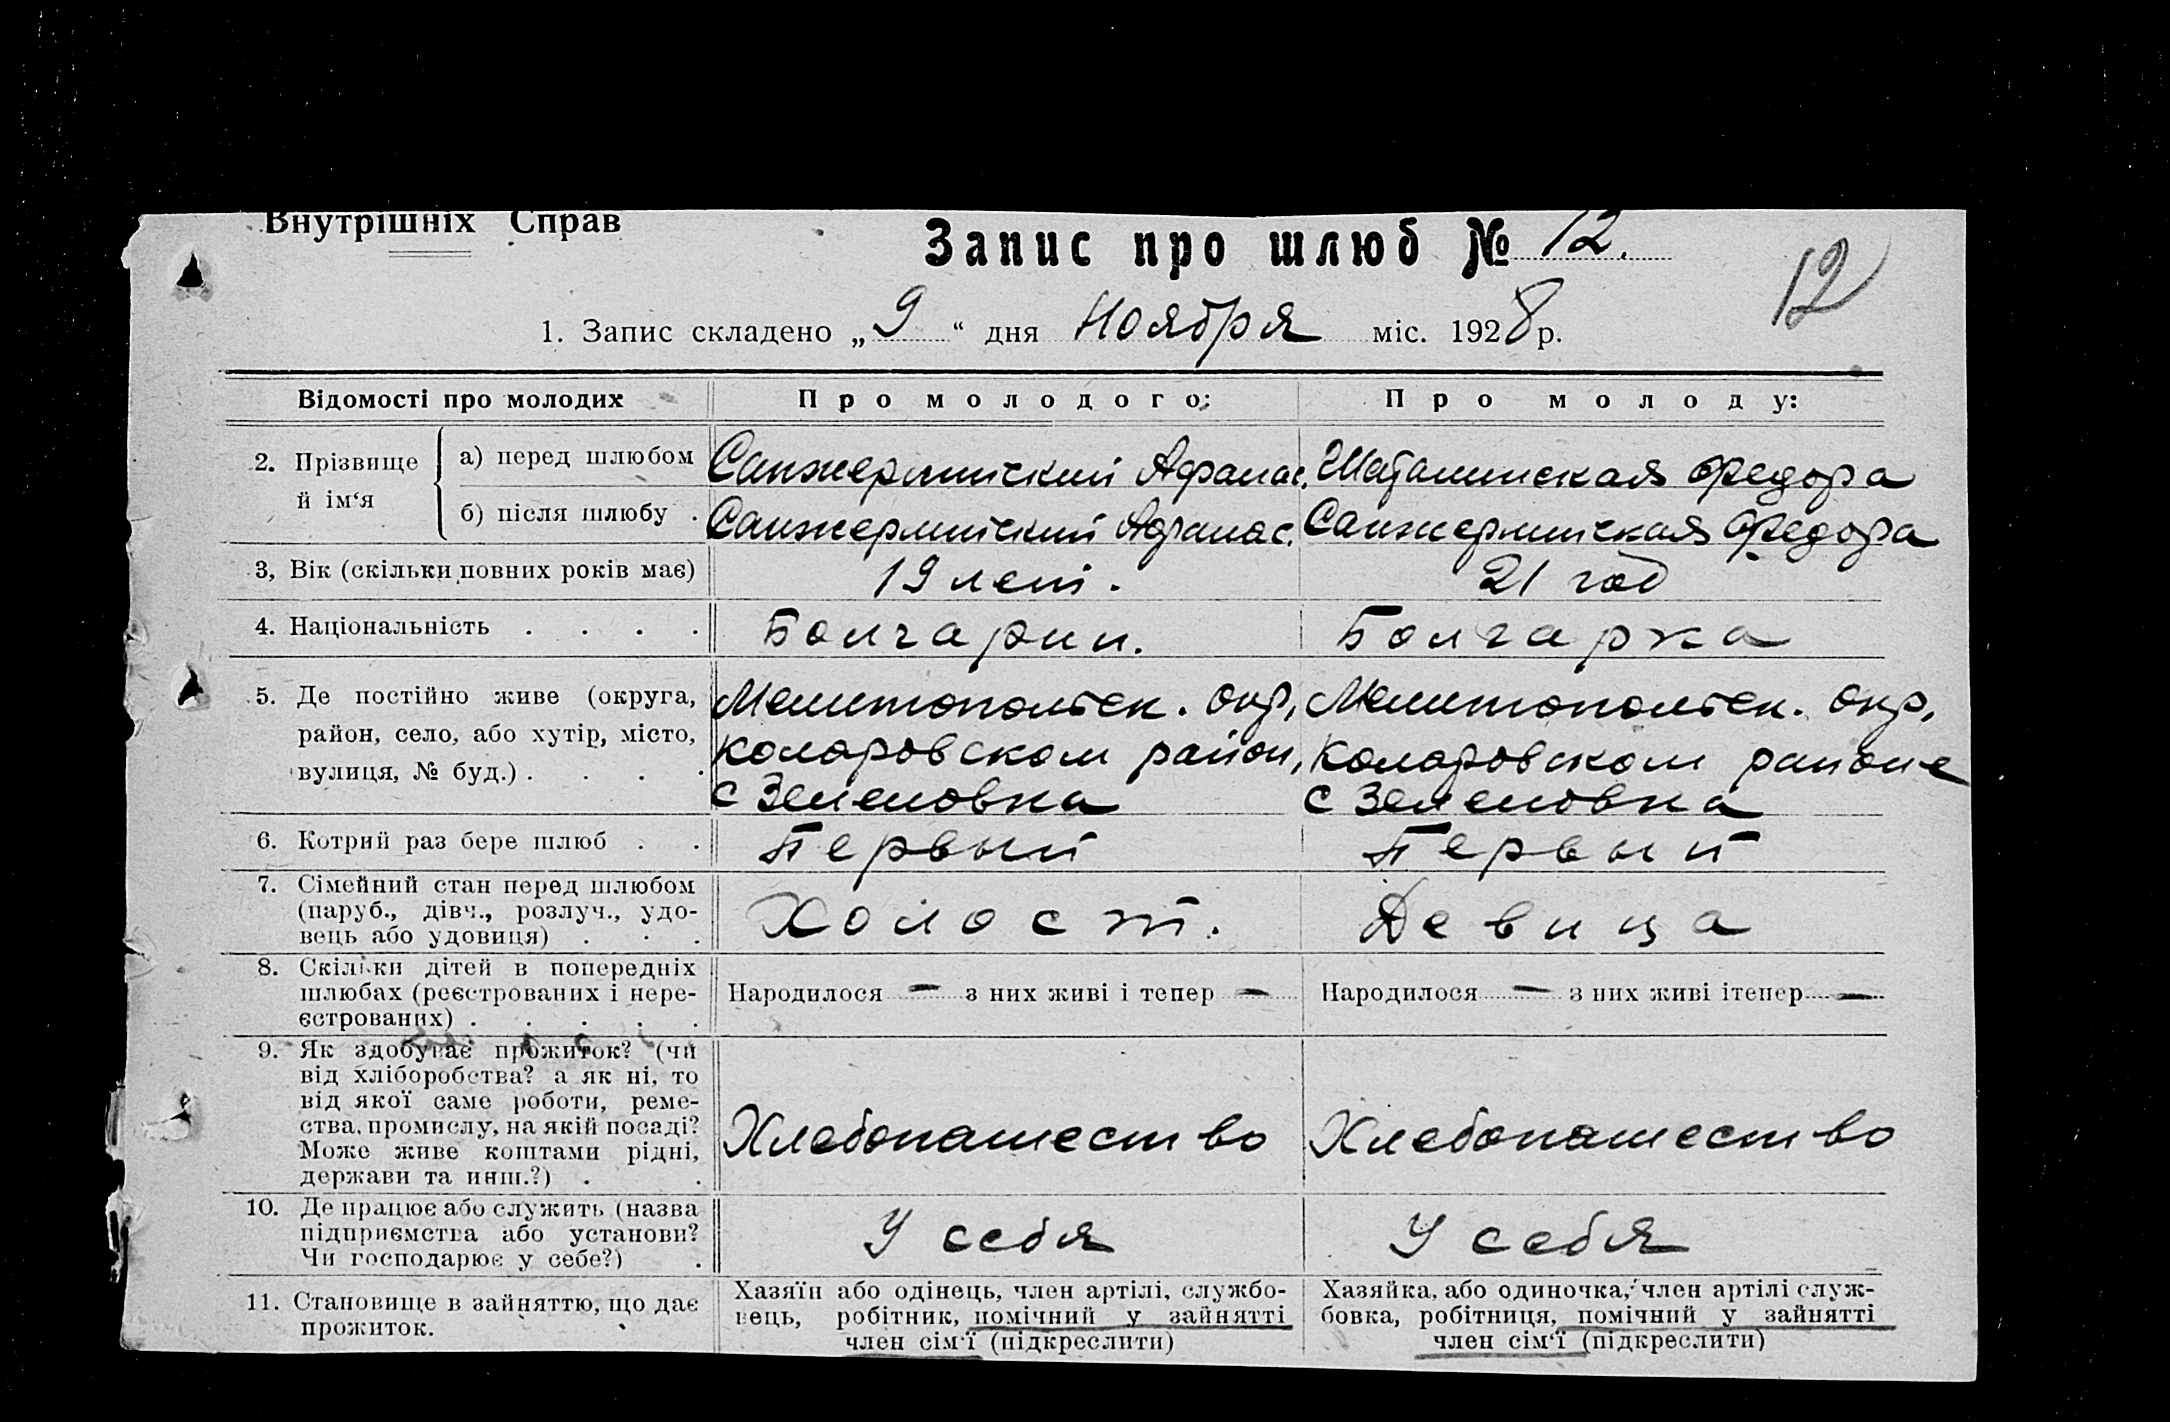 Внутрішніх Справ
Запис про шлюб № 12.
12
1. Запис складено „9“ дня Ноября міс. 1928 р.
Відомості про молодих
Про молодого:
Про молоду:
2. Прізвище й ім‘я
а) перед шлюбом
Санжермический Афанас.
Шаталинская Федора
б) після шлюбу .
Санжермический Афанас.
Санжермическая Федора
3, Вік (скільки повних років має)
19 лет.
21 год
4. Національність . . . .
Болгарин.
Болгарка
5. Де постійно живе (округа,
район, село, або хутір, місто,
вулиця, № буд.) . . . .
Мелитопольск. окр,
Коларовском район,
с Зеленовка
Мелитопольск. окр,
Коларовском районе
с Зеленовка
6. Котрий раз бере шлюб . .
Первый
Первый
7. Сімейний стан перед шлюбом
(паруб., дівч., розлуч., удо-
вець або удовиця) . . .
Холост.
Девица
8. Скільки дітей в попередніх
шлюбах (реєстрованих і нере-
єстрованих) . . . . .
Народилося — з них живі і тепер —
Народилося — з них живі ітепер —
9. Як здобуває прожиток? (чи
від хліборобства? а як ні, то
від якої саме роботи, реме-
ства, промислу, на якій посаді?
Може живе коштами рідні,
держави та инш.?) . .
Хлебопашество
Хлебопашество
10. Де працює або служить (назва
підприємства або установи?
Чи господарює у себе?) .
У себя
У себя
11. Становище в зайняттю, що дає
прожиток.
Хазяїн або одінець, член артілі, службо-
вець, робітник, помічний у зайнятті
член сім‘ї (підкреслити)
Хазяйка, або одиночка, член артілі служ-
бовка, робітниця, помічний у зайнятті
член сім‘ї (підкреслити)